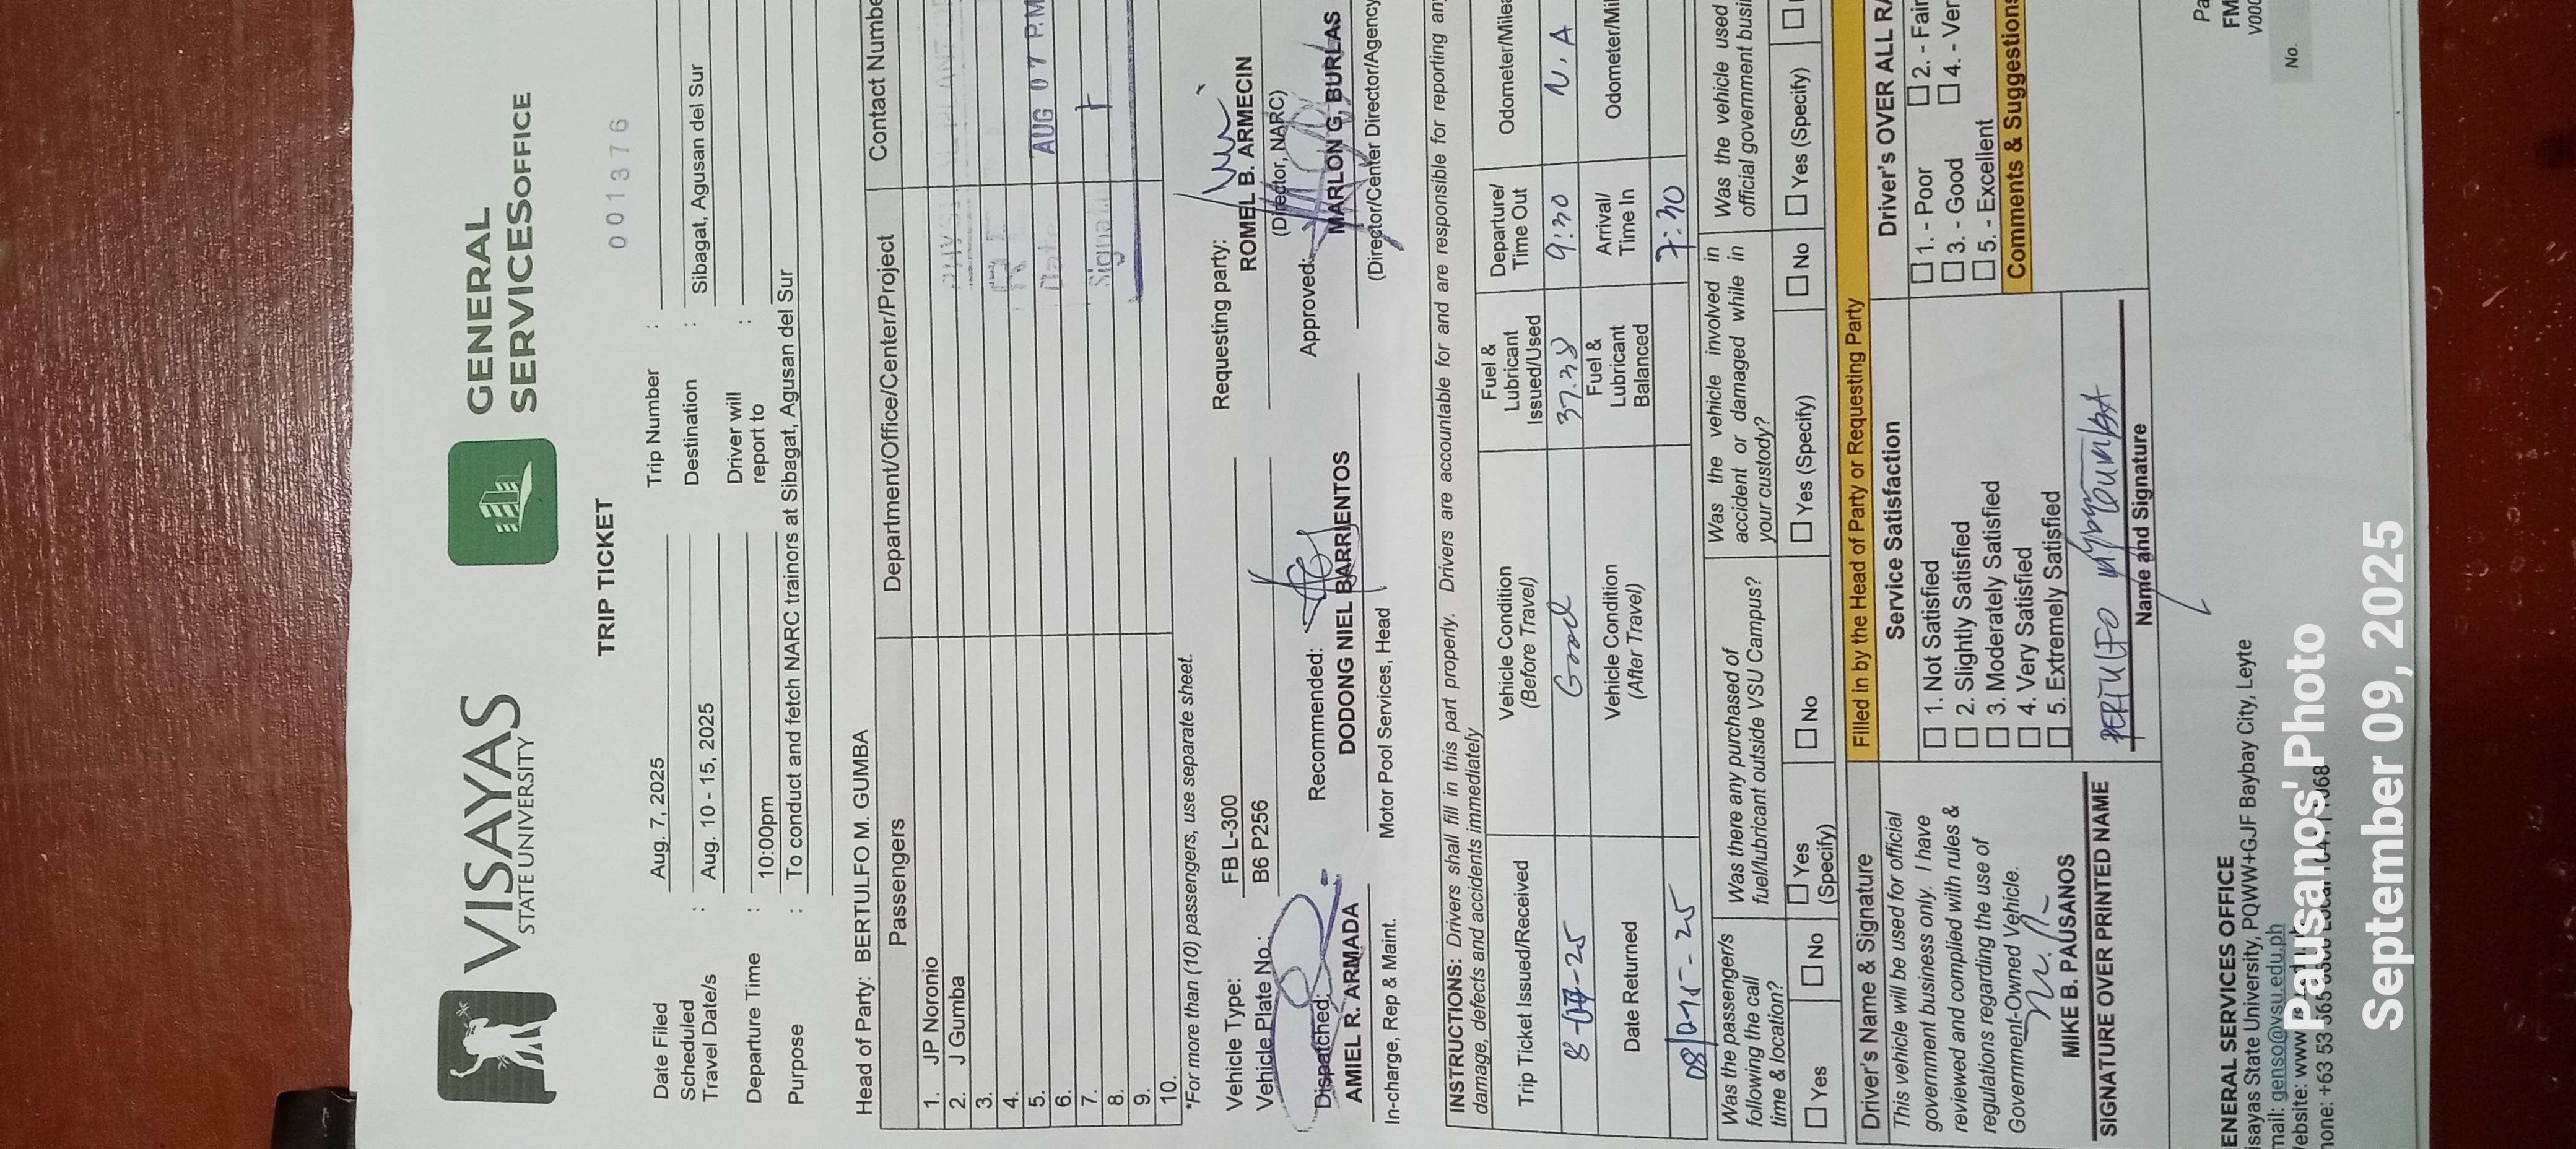 VISAYAS
STATE UNIVERSITY
GENERAL
SERVICES OFFICE
001376
TRIP TICKET
Date Filed Aug. 7, 2025 Trip Number :
Scheduled
Travel Date/s : Aug. 10 - 15, 2025 Destination : Sibagat, Agusan del Sur
Departure Time : 10:00pm Driver will
report to :
Purpose : To conduct and fetch NARC trainors at Sibagat, Agusan del Sur
Head of Party: BERTULFO M. GUMBA
Passengers Department/Office/Center/Project Contact Numbe
1. JP Noronio
2. J Gumba
3.
4.
5.
6.
7.
8.
9.
10.
AUG 07 P.M
Date
Signat
*For more than (10) passengers, use separate sheet.
Vehicle Type: FB L-300
Vehicle Plate No.: B6 P256
Requesting party:
ROMEL B. ARMECIN
(Director, NARC)
Dispatched:
AMIEL R. ARMADA
In-charge, Rep & Maint.
Recommended:
DODONG NIEL BARRIENTOS
Motor Pool Services, Head
Approved:
MARLON G. BURLAS
(Director/Center Director/Agency
INSTRUCTIONS: Drivers shall fill in this part properly. Drivers are accountable for and are responsible for reporting any
damage, defects and accidents immediately
Trip Ticket Issued/Received
Vehicle Condition
(Before Travel)
Fuel &
Lubricant
Issued/Used
Departure/
Time Out
Odometer/Milea
Good 37.38 9:30 N.A
Date Returned
Vehicle Condition
(After Travel)
Fuel &
Lubricant
Balanced
Arrival/
Time In
Odometer/Mil
7:30
Was the passenger/s
following the call
time & location?
Was there any purchased of
fuel/lubricant outside VSU Campus?
Was the vehicle involved in
accident or damaged while in
your custody?
Was the vehicle used
official government busi
Yes No
Yes
(Specify) No
Yes (Specify) No
Yes (Specify)
Driver's Name & Signature
This vehicle will be used for official
government business only. I have
reviewed and complied with rules &
regulations regarding the use of
Government-Owned Vehicle.
MIKE B. PAUSANOS
SIGNATURE OVER PRINTED NAME
Filled in by the Head of Party or Requesting Party
Service Satisfaction
1. Not Satisfied
2. Slightly Satisfied
3. Moderately Satisfied
4. Very Satisfied
5. Extremely Satisfied
Name and Signature
Driver's OVER ALL RA
1. - Poor 2. - Fair
3. - Good 4. - Ver
5. - Excellent
Comments & Suggestions
ENERAL SERVICES OFFICE
isayas State University, PQWW+GJF Baybay City, Leyte
mail: genso@vsu.edu.ph
ebsite: www
hone: +63 53
Pa
FM
V000
No.
Pausanos' Photo
September 09, 2025